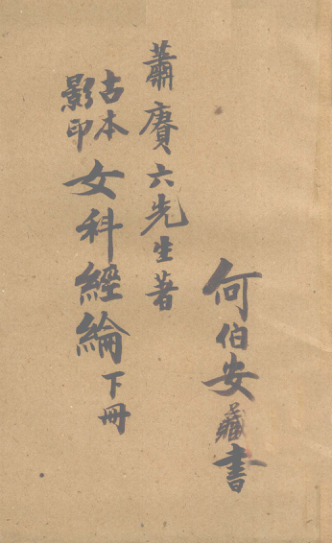 何伯安藏書
蕭賡六先生著
古本影印女科經綸下冊